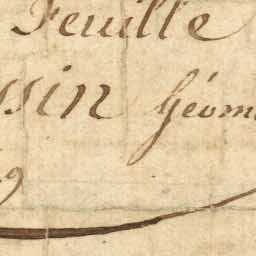 Feuille
ssin Géom
9